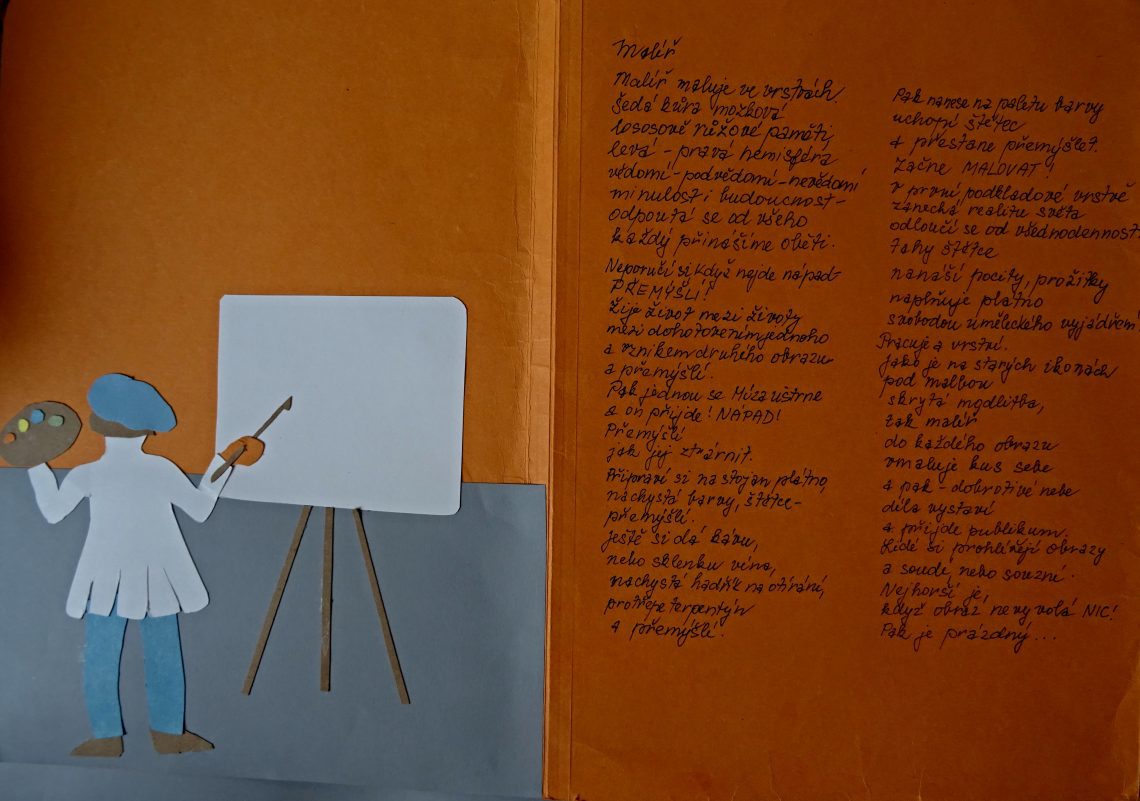 Malíř
Malíř maluje ve vrstvách.
Šedá kůra mozková
lososově růžové paměti,
levá - pravá hemisféra
vědomí - podvědomí - nevědomí
minulost i budoucnost -
odpoutá se od všeho
každý přinášíme oběti.
Neporučí si když nejde nápad -
PŘEMÝŠLÍ!
Žije život mezi životy
mezi dohotovením jednoho
a vznikem druhého obrazu -
a přemýšlí.
Pak jednou se Múza ustrne
a on přijde! NÁPAD!
Přemýšlí
jak jej ztvárnit.
Připraví si na stojan plátno,
nachystá barvy, štětce -
přemýšlí.
Ještě si dá kávu,
nebo sklenku vína,
nachystá hadřík na otírání,
protřepe terpentýn
a přemýšlí.
Pak nanese na paletu barvy
uchopí štětec
a přestane přemýšlet.
Začne MALOVAT!
V první podkladové vrstvě
zanechá realitu světa
odloučí se od všednodennosti
tahy štětce
nanáší pocity, prožitky
naplňuje plátno
svobodou uměleckého vyjádření
Pracuje a vrství.
Jako je na starých ikonách
pod malbou
skrytá modlitba,
tak malíř
do každého obrazu
vmaluje kus sebe
a pak - dobrotivé nebe
díla vystaví
a přijde publikum.
Lidé si prohlížejí obrazy
a soudí, nebo souzní.
Nejhorší je,
když obraz nevyvolá NIC!
Pak je prázdný...